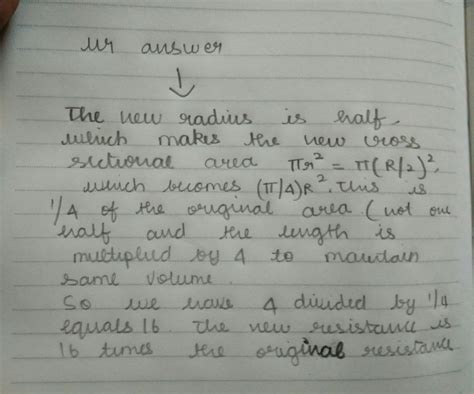 ur answer
↓
The new radius is half.
which makes the new cross
sectional area πr² = π(R/2)²,
which becomes (π/4)R². This is
1/4 of the original area (not one
half and the length is
multiplied by 4 to maintain
same volume.
So we have 4 divided by 1/4
equals 16. The new resistance is
16 times the original resistance